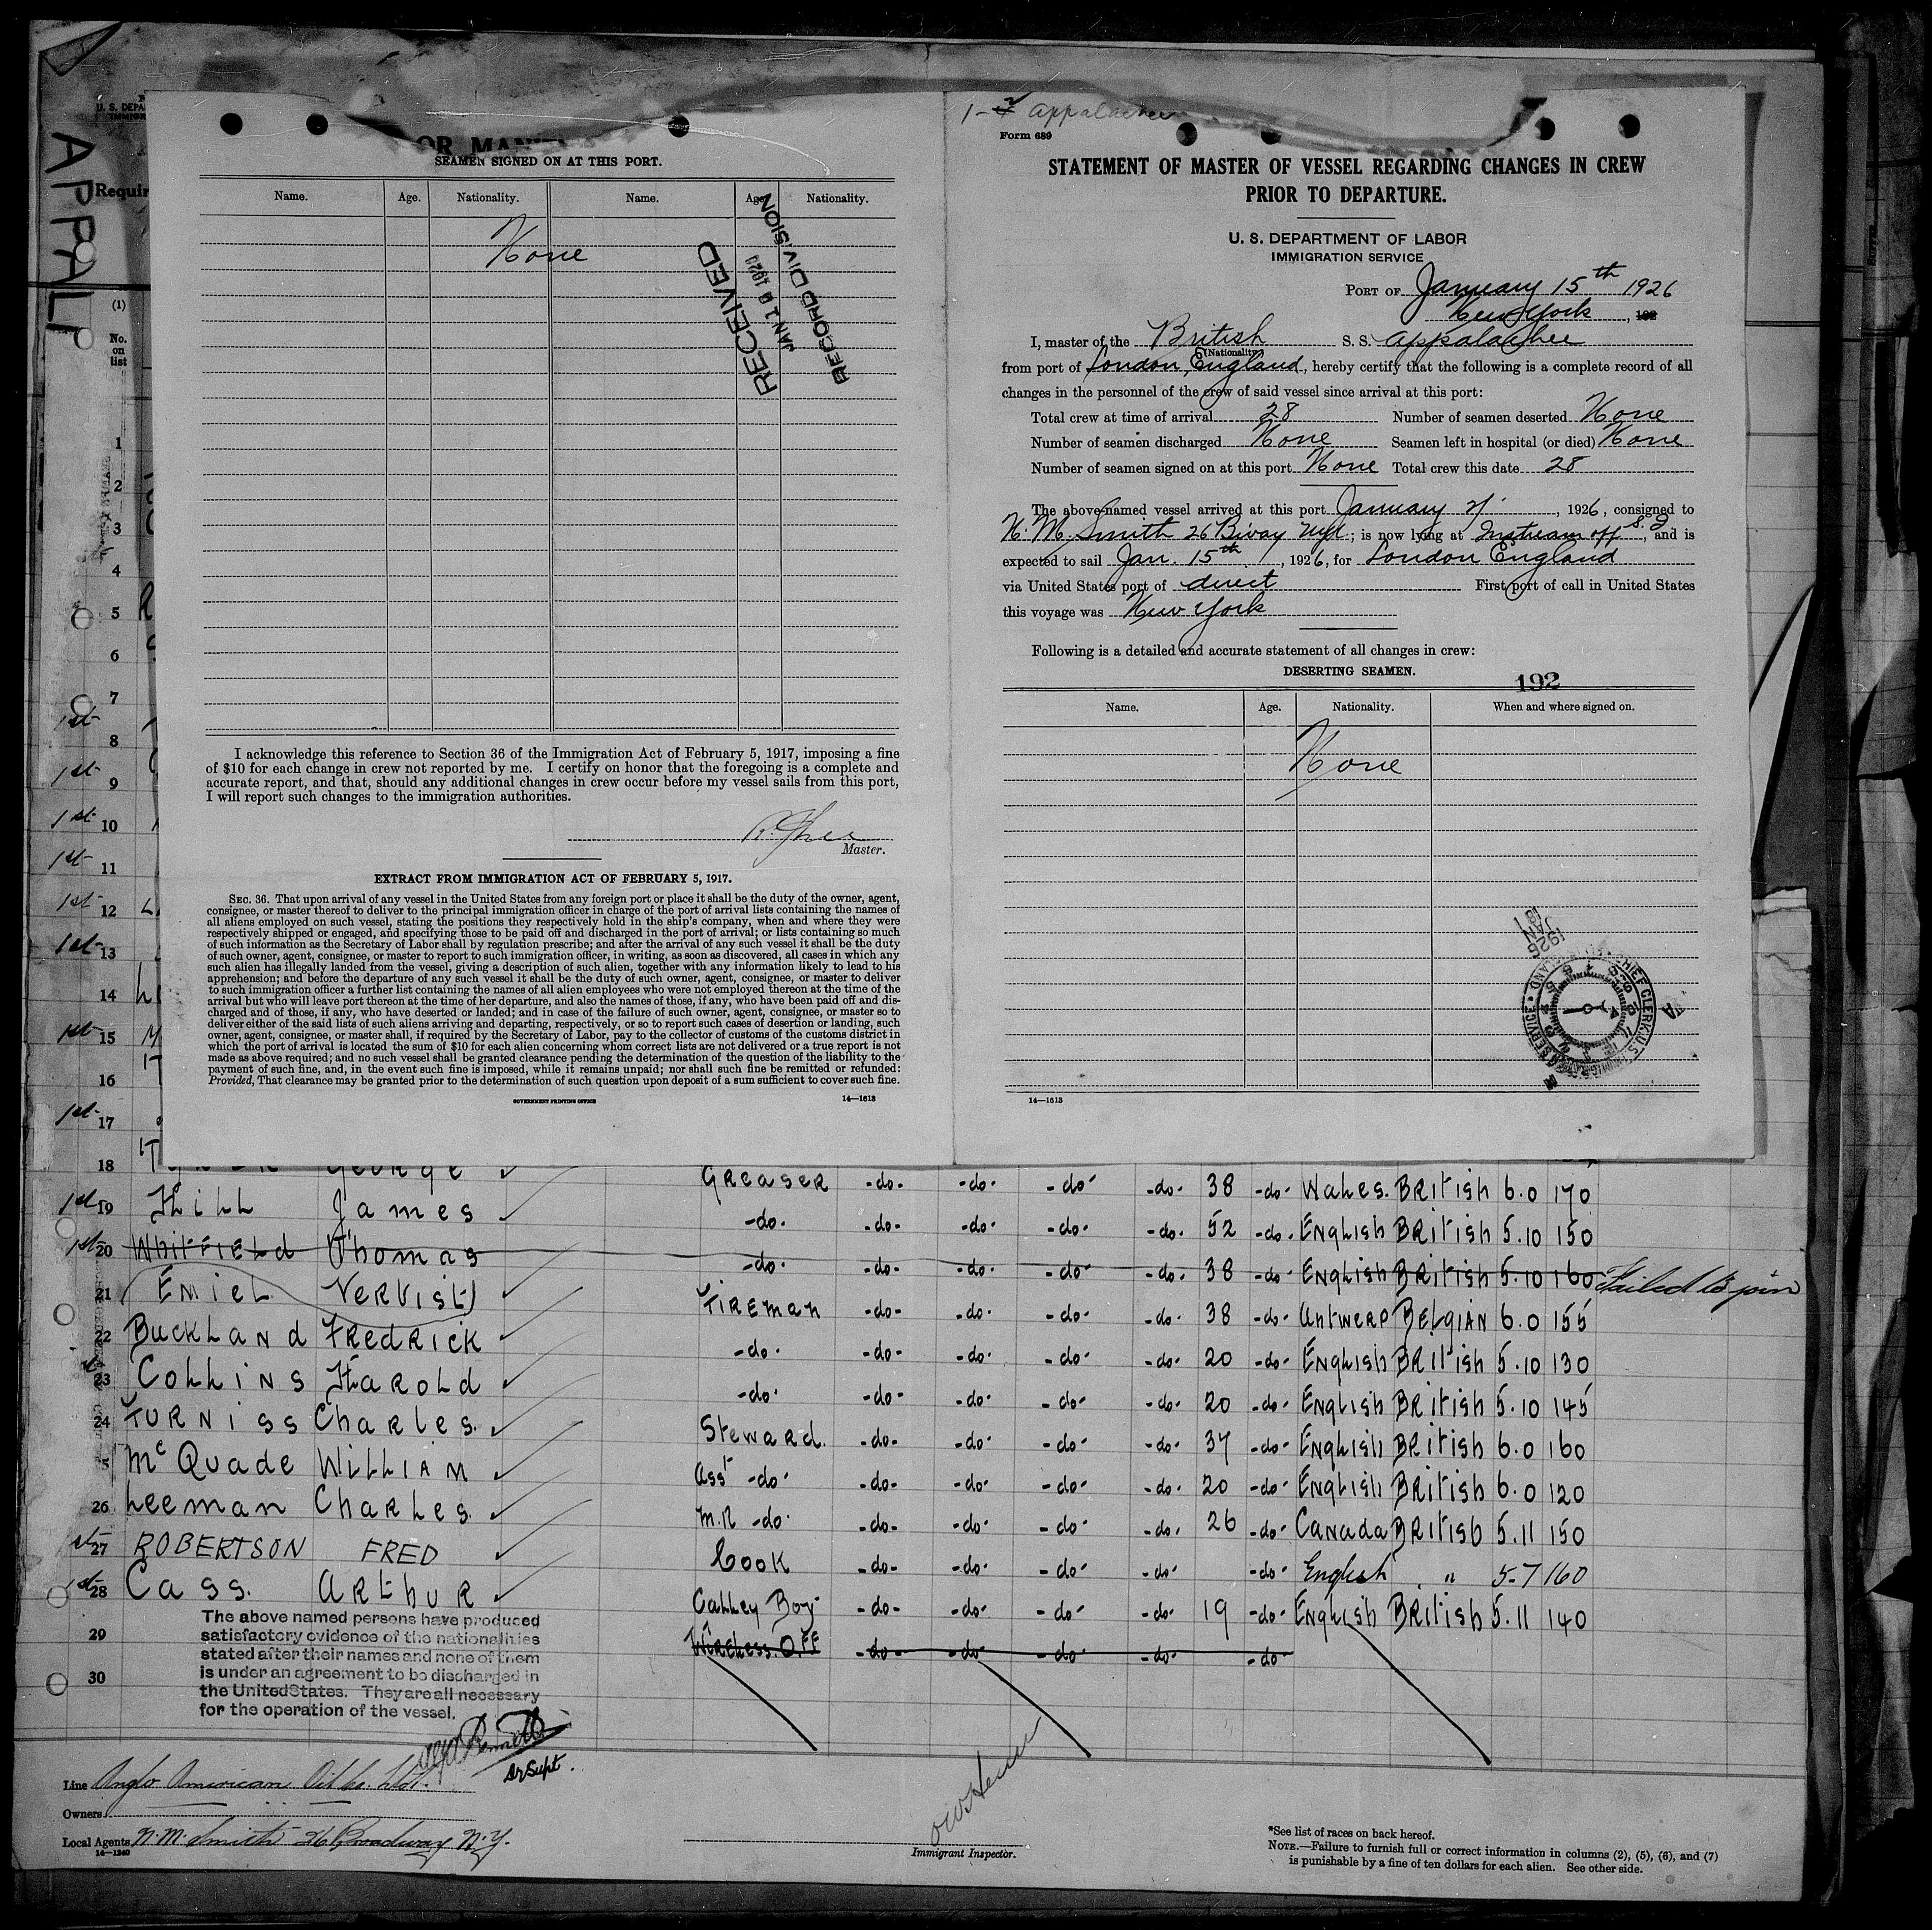 OR MAN
SEAMEN SIGNED ON AT THIS PORT.
Name. Age. Nationality. Name. Age. Nationality.
None
RECEIVED
JAN 1 192
RECORD DIVISION
I acknowledge this reference to Section 36 of the Immigration Act of February 5, 1917, imposing a fine
of $10 for each change in crew not reported by me. I certify on honor that the foregoing is a complete and
accurate report, and that, should any additional changes in crew occur before my vessel sails from this port,
I will report such changes to the immigration authorities.
Master.
EXTRACT FROM IMMIGRATION ACT OF FEBRUARY 5, 1917.
SEC. 36. That upon arrival of any vessel in the United States from any foreign port or place it shall be the duty of the owner, agent,
consignee, or master thereof to deliver to the principal immigration officer in charge of the port of arrival lists containing the names of
all aliens employed on such vessel, stating the positions they respectively hold in the ship's company, when and where they were
respectively shipped or engaged, and specifying those to be paid off and discharged in the port of arrival; or lists containing so much
of such information as the Secretary of Labor shall by regulation prescribe; and after the arrival of any such vessel it shall be the duty
of such owner, agent, consignee, or master to report to such immigration officer, in writing, as soon as discovered, all cases in which any
such alien has illegally landed from the vessel, giving a description of such alien, together with any information likely to lead to his
apprehension; and before the departure of any such vessel it shall be the duty of such owner, agent, consignee, or master to deliver
to such immigration officer a further list containing the names of all alien employees who were not employed thereon at the time of the
arrival but who will leave port thereon at the time of her departure, and also the names of those, if any, who have been paid off and dis-
charged and of those, if any, who have deserted or landed; and in case of the failure of such owner, agent, consignee, or master so to
deliver either of the said lists of such aliens arriving and departing, respectively, or so to report such cases of desertion or landing, such
owner, agent, consignee, or master shall, if required by the Secretary of Labor, pay to the collector of customs of the customs district in
which the port of arrival is located the sum of $10 for each alien concerning whom correct lists are not delivered or a true report is not
made as above required; and no such vessel shall be granted clearance pending the determination of the question of the liability to the
payment of such fine, and, in the event such fine is imposed, while it remains unpaid; nor shall such fine be remitted or refunded:
Provided, That clearance may be granted prior to the determination of such question upon deposit of a sum sufficient to cover such fine.
GOVERNMENT PRINTING OFFICE 14—1613
Appalachee
Form 689
STATEMENT OF MASTER OF VESSEL REGARDING CHANGES IN CREW
PRIOR TO DEPARTURE.
U. S. DEPARTMENT OF LABOR
IMMIGRATION SERVICE
PORT OF January 15th 1926
New York, 192
I, master of the British S. S. Appalachee
(Nationality)
from port of London, England, hereby certify that the following is a complete record of all
changes in the personnel of the crew of said vessel since arrival at this port:
Total crew at time of arrival 28 Number of seamen deserted None
Number of seamen discharged None Seamen left in hospital (or died) None
Number of seamen signed on at this port None Total crew this date 28
The above-named vessel arrived at this port January, 1926, consigned to
N. M. Smith 26 Bway; is now lying at Instream off, and is
expected to sail Jan. 15th, 1926, for London England
via United States port of direct First port of call in United States
this voyage was New York
Following is a detailed and accurate statement of all changes in crew:
DESERTING SEAMEN.
192
Name. Age. Nationality. When and where signed on.
None
1926 JAN
CHIEF CLERK U.S.
14—1613
APPAL
U. S. DEPA
Requir
(1)
No. on list
1
2
3
4
5
6
7
1st 8
1st 9
1st 10
1st 11
1st 12
1st 13
14
1st 15
16
1st 17
18 George Greaser -do- -do- -do- -do- 38 -do- Wales. British 6.0 170
1st 19 Hill James -do- -do- -do- -do- -do- 52 -do- English British 5.10 150
1st 20 Whitfield Thomas -do- -do- -do- -do- -do- 38 -do- English British 5.10 160 Failed to join
21 Emiel Vervist Fireman -do- -do- -do- -do- 38 -do- Antwerp Belgian 6.0 155
22 Buckland Fredrick -do- -do- -do- -do- -do- 20 -do- English British 5.10 130
23 Collins Harold -do- -do- -do- -do- -do- 20 -do- English British 5.10 145
24 Furniss Charles. Steward. -do- -do- -do- -do- 37 -do- English British 6.0 160
5 McQuade William Asst -do- -do- -do- -do- -do- 20 -do- English British 6.0 120
26 Leeman Charles. M.R -do- -do- -do- -do- -do- 26 -do- Canada British 5.11 150
27 ROBERTSON FRED Cook -do- -do- -do- -do- -do- English " 5-7 160
1st 28 Cass. Arthur Galley Boy -do- -do- -do- -do- 19 -do- English British 5.11 140
29 Wireless. Off -do- -do- -do- -do- -do-
30
The above named persons have produced
satisfactory evidence of the nationalities
stated after their names and none of them
is under an agreement to be discharged in
the United States. They are all necessary
for the operation of the vessel.
Line Anglo American Oil Co. Ltd.
Owners
Local Agents N. M. Smith 26 Broadway N.Y.
14—1240
Immigrant Inspector.
*See list of races on back hereof.
NOTE.—Failure to furnish full or correct information in columns (2), (5), (6), and (7)
is punishable by a fine of ten dollars for each alien. See other side.